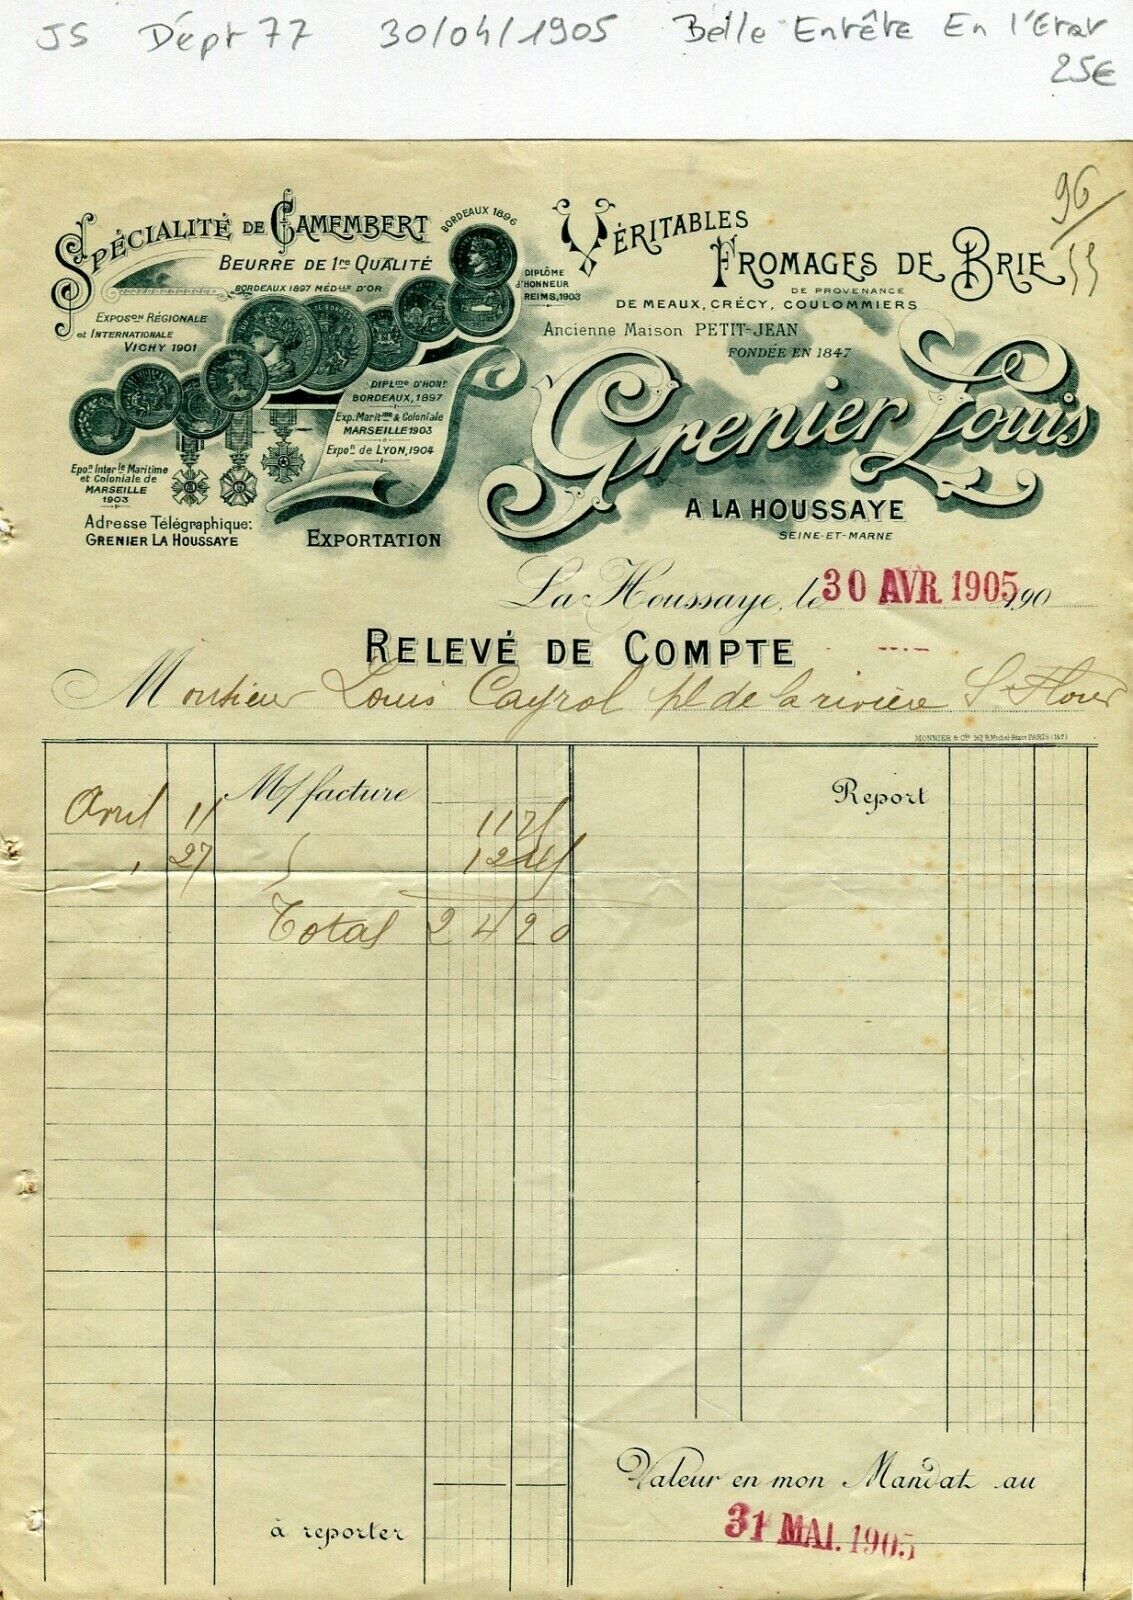 JS Dépt 77 30/04/1905 Belle Entête En l'Etat
25€
96
SPÉCIALITÉ DE CAMEMBERT
BEURRE DE 1re QUALITÉ
BORDEAUX 1896
BORDEAUX 1897 MÉDlle D'OR
EXPOSon RÉGIONALE
et INTERNATIONALE
VICHY 1901
DIPLÔME
D'HONNEUR
REIMS, 1903
DIPLme D'HONr
BORDEAUX, 1897
Exp. Maritme & Coloniale
MARSEILLE 1903
Expon de LYON, 1904
Epon Interle Maritime
et Coloniale de
MARSEILLE
1903
Adresse Télégraphique:
GRENIER LA HOUSSAYE
EXPORTATION
VÉRITABLES
FROMAGES DE BRIE
DE PROVENANCE
DE MEAUX, CRÉCY, COULOMMIERS
Ancienne Maison PETIT-JEAN
FONDÉE EN 1847
Grenier Louis
A LA HOUSSAYE
SEINE-ET-MARNE
La Houssaye, le 30 AVR. 1905 190
RELEVÉ DE COMPTE
Monsieur Louis Cayrol pl de la rivière St Flour
MONNIER & Cie PARIS
M/ facture Report
Avril 11
27
Total 242 0
Valeur en mon Mandat au
31 MAI. 1905
à reporter